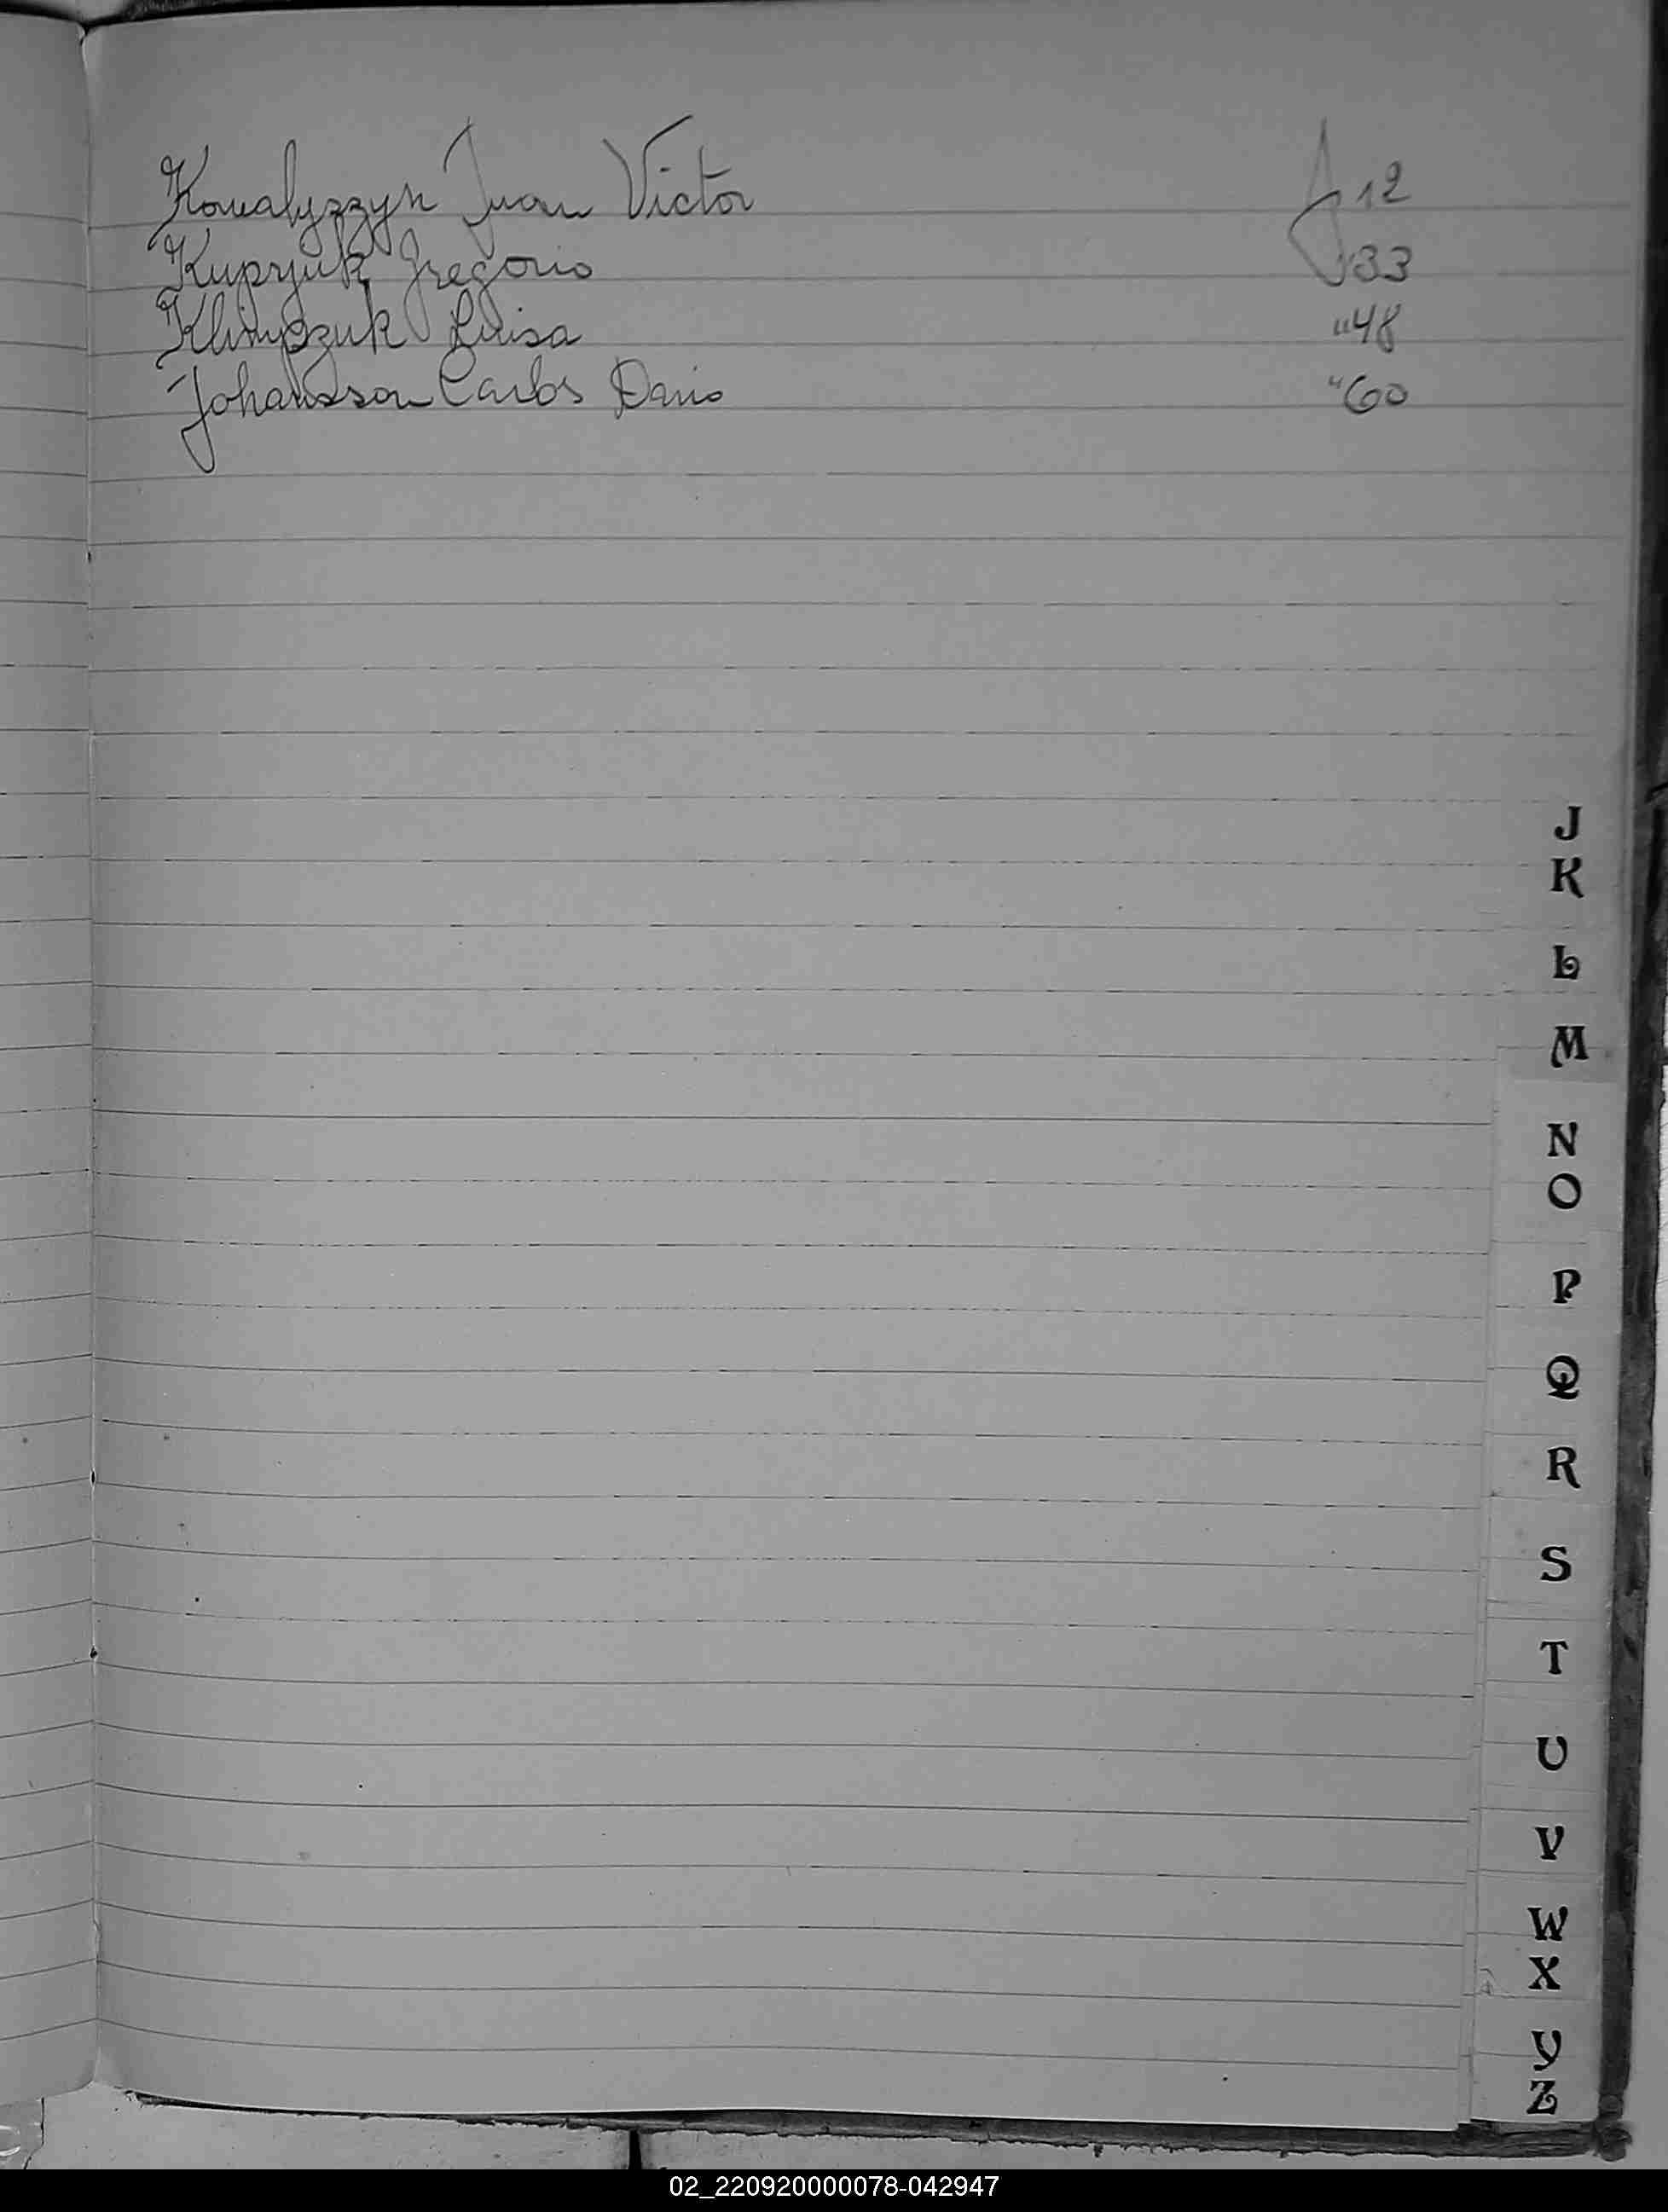 Kowalyszyn Juan Victor f 12
Kuprjuk Gregorio "33
Klimpzuk Luisa "48
Johansson Carlos Dario "60
J
K
L
M
N
O
P
Q
R
S
T
U
V
W
X
Y
Z
02_220920000078-042947